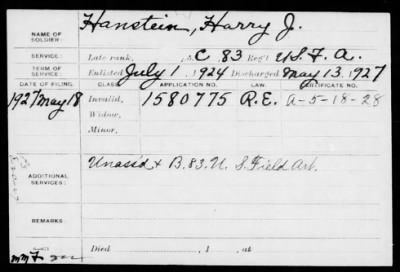 NAME OF SOLDIER: Hanstein, Harry J.
SERVICE: Late rank, Co. C, 83 Reg't U.S.F.A.
TERM OF SERVICE: Enlisted July 1, 1924 Discharged May 13, 1927
DATE OF FILING. CLASS. APPLICATION NO. LAW. CERTIFICATE NO.
1927 May 18 Invalid, 1580775 R.E. A-5-18-28
Widow,
Minor,
ADDITIONAL SERVICES: Unassd & B. 83. U. S. Field Art.
REMARKS:
Died , 1 , at